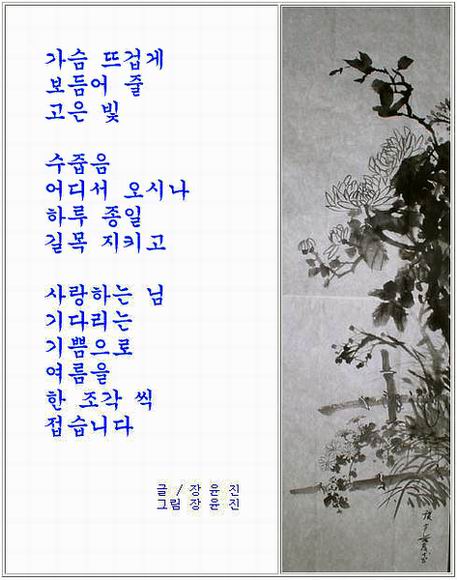 가슴 뜨겁게
보듬어 줄
고은 빛
수줍음
어디서 오시나
하루 종일
길목 지키고
사랑하는 님
기다리는
기쁨으로
여름을
한 조각 씩
접습니다
글 / 장 윤 진
그림 장 윤 진